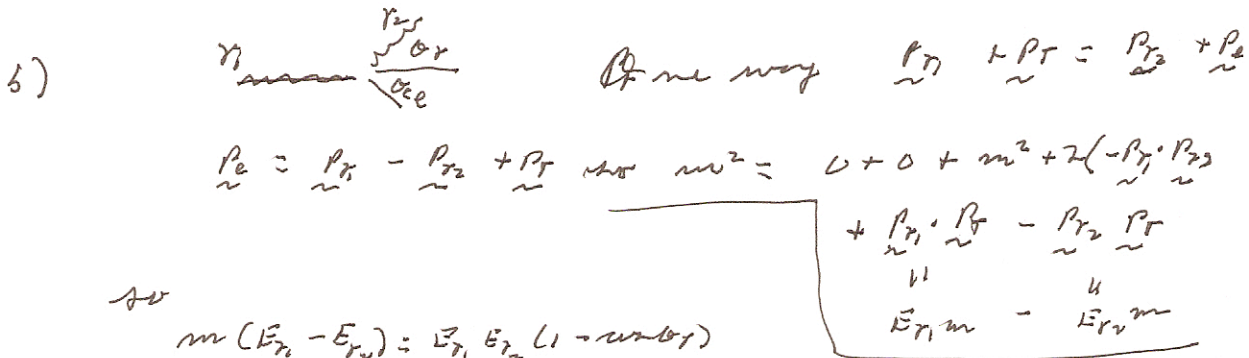 b) γ₁ γ₂ θ_γ θ_e e way P_γ₁ + P_T = P_γ₂ + P_e
P_e = P_γ₁ - P_γ₂ + P_T so m² = 0 + 0 + m² + 2(-P_γ₁·P_γ₂
+ P_γ₁·P_T - P_γ₂ P_T
" "
E_γ₁ m - E_γ₂ m
so
m(E_γ₁ - E_γ₂) = E_γ₁ E_γ₂ (1 - cosθ_γ)